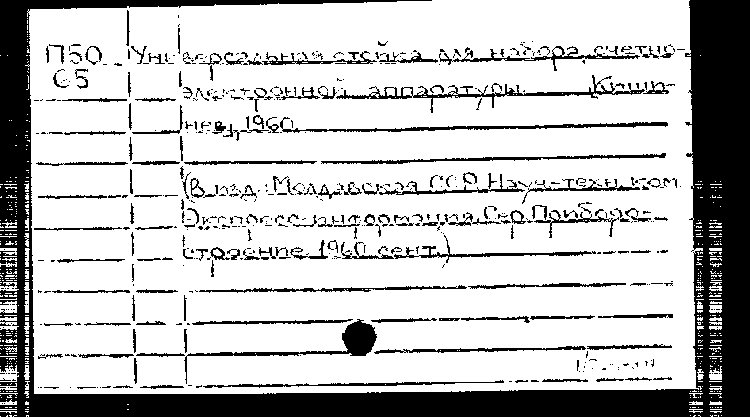 П50 Универсальная стойка для набора счетно-
65
электронной аппаратуры. Киши-
нев, 1960.
(В изд.: Молдавская ССР. Науч-техн. ком.
Экспресс-информация. Сер. Приборо-
строение. 1960. сент.)